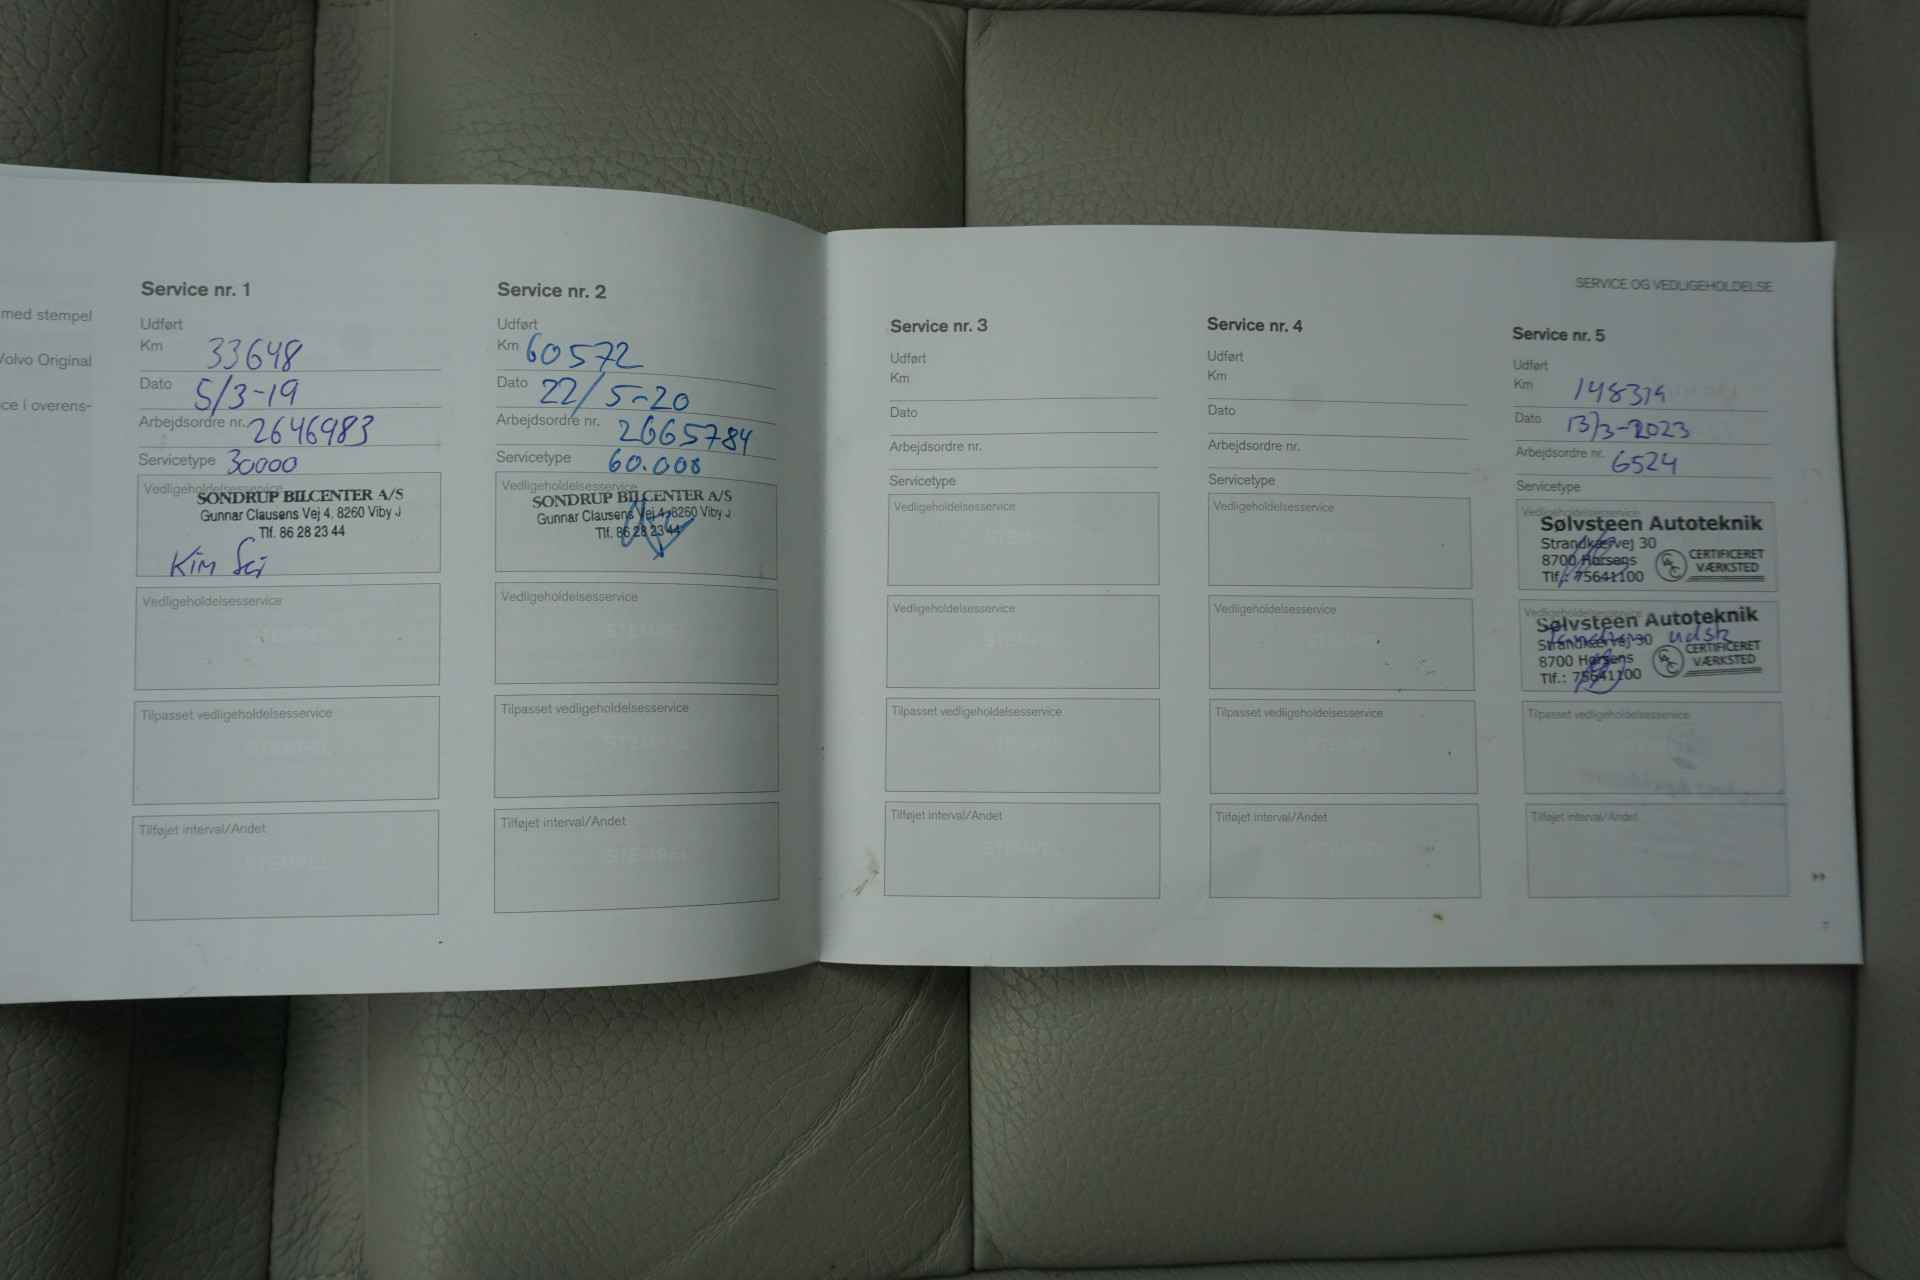 med stempel
Volvo Original
ce i overens-
Service nr. 1
Udført
Km 33648
Dato 5/3-19
Arbejdsordre nr. 2646983
Servicetype 30000
Vedligeholdelsesservice
SONDRUP BILCENTER A/S
Gunnar Clausens Vej 4, 8260 Viby J
Tlf. 86 28 23 44
Kim
Vedligeholdelsesservice
STEMPEL
Tilpasset vedligeholdelsesservice
STEMPEL
Tilføjet interval/Andet
STEMPEL
Service nr. 2
Udført
Km 60572
Dato 22/5-20
Arbejdsordre nr. 2665784
Servicetype 60.000
Vedligeholdelsesservice
SONDRUP BILCENTER A/S
Gunnar Clausens Vej 4, 8260 Viby J
Tlf. 86 28 23 44
Vedligeholdelsesservice
STEMPEL
Tilpasset vedligeholdelsesservice
STEMPEL
Tilføjet interval/Andet
STEMPEL
SERVICE OG VEDLIGEHOLDELSE
Service nr. 3
Udført
Km
Dato
Arbejdsordre nr.
Servicetype
Vedligeholdelsesservice
STEMPEL
Vedligeholdelsesservice
STEMPEL
Tilpasset vedligeholdelsesservice
STEMPEL
Tilføjet interval/Andet
STEMPEL
Service nr. 4
Udført
Km
Dato
Arbejdsordre nr.
Servicetype
Vedligeholdelsesservice
STEMPEL
Vedligeholdelsesservice
STEMPEL
Tilpasset vedligeholdelsesservice
STEMPEL
Tilføjet interval/Andet
STEMPEL
Service nr. 5
Udført
Km 148319
Dato 13/3-2023
Arbejdsordre nr. 6524
Servicetype
Vedligeholdelsesservice
Sølvsteen Autoteknik
Strandkærvej 30
8700 Horsens
Tlf.: 75641100
CERTIFICERET
VÆRKSTED
Vedligeholdelsesservice
Sølvsteen Autoteknik
Strandkærvej 30
udsk
8700 Horsens
Tlf.: 75641100
CERTIFICERET
VÆRKSTED
Tilpasset vedligeholdelsesservice
Tilføjet interval/Andet